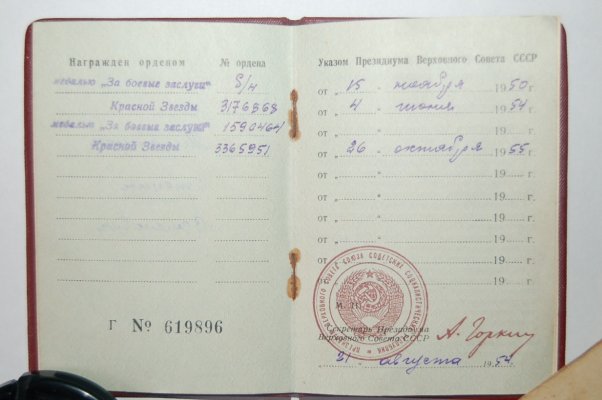 Награжден орденом № ордена
медалью „За боевые заслуги" б/н
Красной Звезды 3176868
медалью „За боевые заслуги" 1590464
Красной Звезды 3365951
Г № 619896
Указом Президиума Верховного Совета СССР
от „ 15 " ноября 1950 г.
от „ 4 " июня 1954 г.
от „ " 19 г.
от „ 26 " октября 1955 г.
от „ " 19 г.
от „ " 19 г.
от „ " 19 г.
от „ " 19 г.
от „ " 19 г.
от „ " 19 г.
М. П.
Секретарь Президиума
Верховного Совета СССР А. Горкин
„ 21 " августа 1954 г.